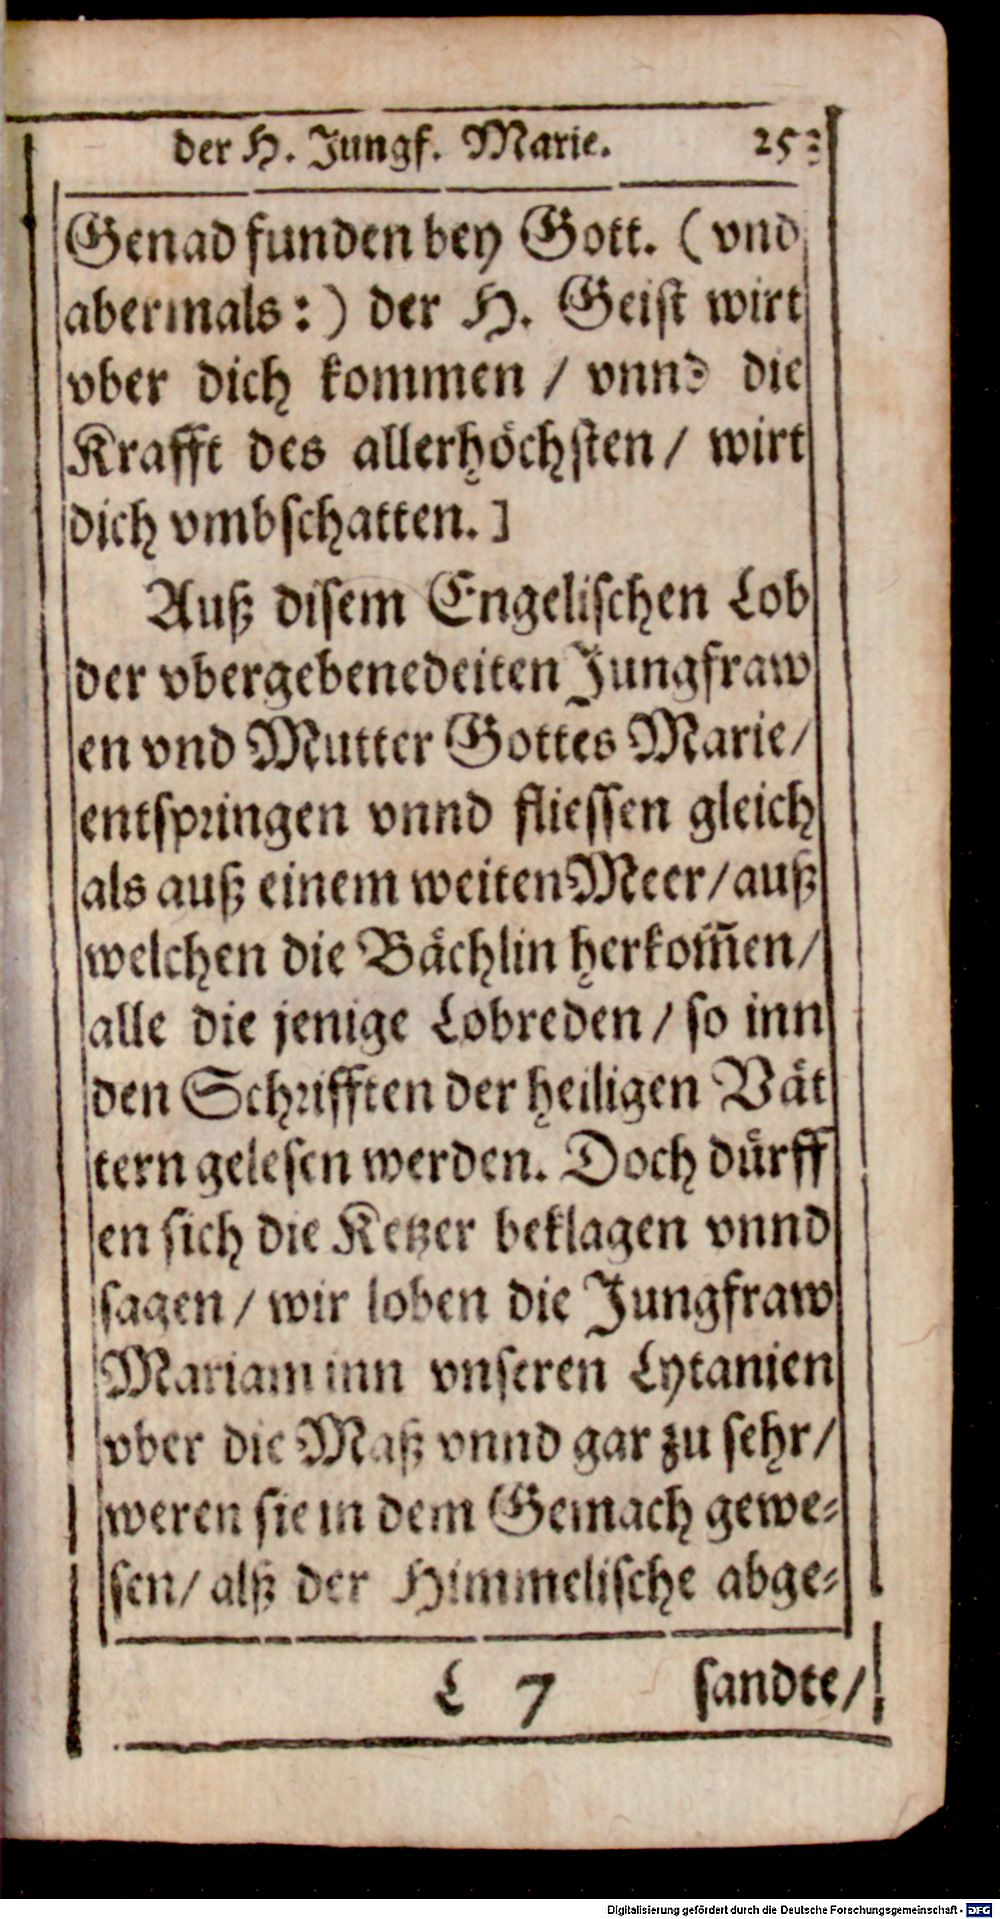 der H. Jungf. Marie. 253
Genad funden bey Gott. (vnd
abermals:) der H. Geist wirt
vber dich kommen / vnnd die
Krafft des allerhöchsten / wirt
dich vmbschatten.]
Auß disem Engelischen Lob
der vbergebenedeiten Jungfraw
en vnd Mutter Gottes Marie/
entspringen vnnd fliessen gleich
als auß einem weiten Meer/ auß
welchen die Bächlin herkom̄en/
alle die jenige Lobreden / so inn
den Schrifften der heiligen Vät
tern gelesen werden. Doch dürff
en sich die Ketzer beklagen vnnd
sagen / wir loben die Jungfraw
Mariam inn vnseren Lytanien
vber die Maß vnnd gar zu sehr/
weren sie in dem Gemach gewe-
sen/ alß der Himmelische abge-
L 7 sandte/
Digitalisierung gefördert durch die Deutsche Forschungsgemeinschaft - DFG